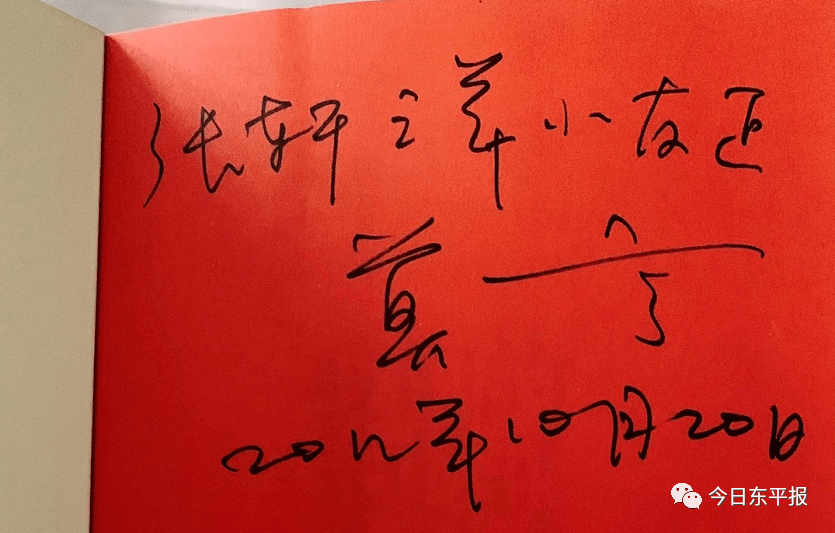 张轩祥小友正
莫言
2012年10月20日
今日东平报